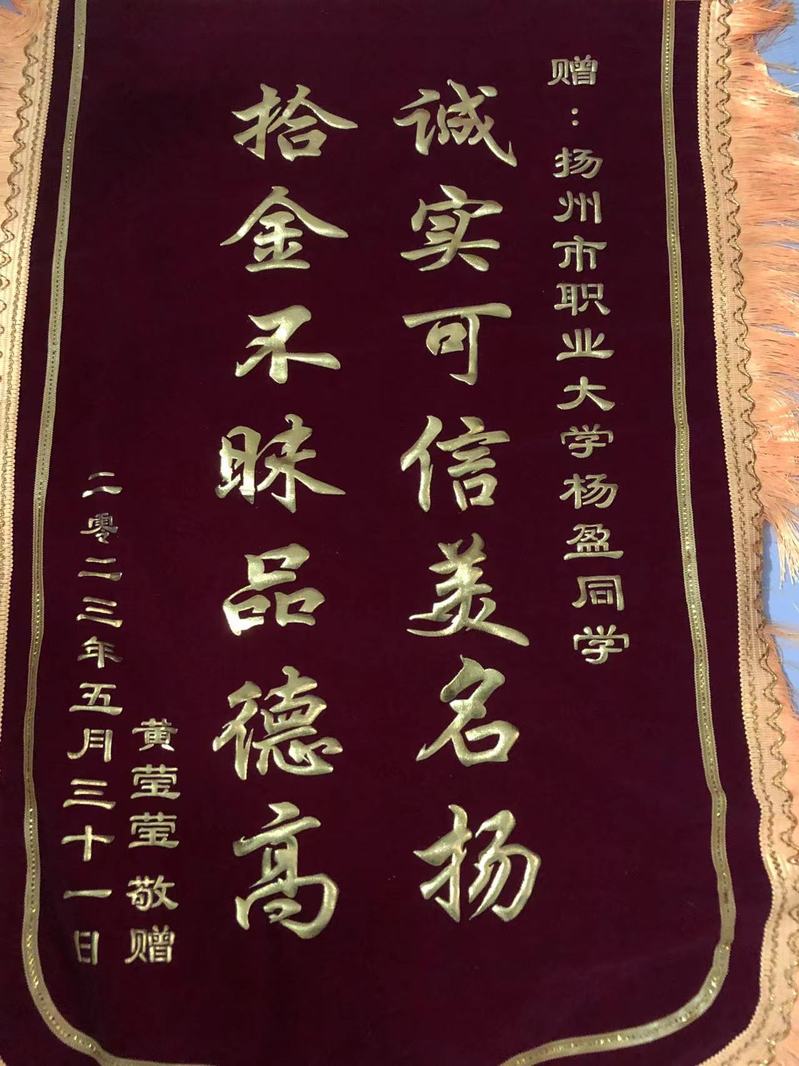 赠：扬州市职业大学杨盈同学
诚实可信美名扬
拾金不昧品德高
黄莹莹 敬赠
二零二三年五月三十一日